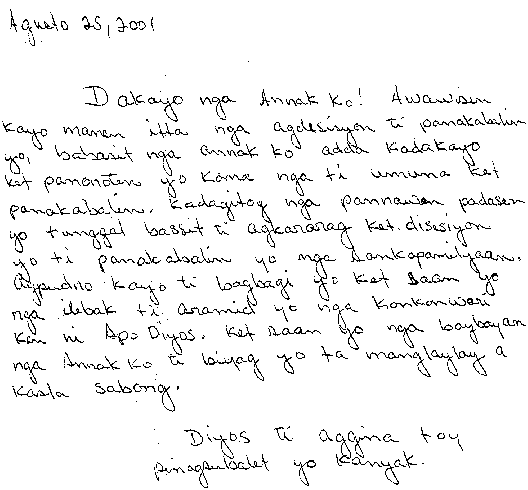 Agosto 25, 2001
Dakayo nga Annak ko! Awawisen
kayo manen itta nga agdesisyon ti panakabalin
yo, babassit nga annak ko adda kadakayo
ket panonoten yo koma nga ti umuna ket
panakabalin. Kadagitoy nga pannawen padasen
yo tunggal bassit ti agkararag ket disesiyon
yo ti panakabalin yo nga sankapamilyaan.
kayo ti bagbagi yo ket saan yo
nga ilibak ti aramid yo nga konkomwari
ken ni Apo Diyos. Ket saan yo nga baybayan
nga Annak ko ti biyag yo ta manglaylay a
kasla sabong.
Diyos ti aggina toy
pinagsubalet yo kanyak.